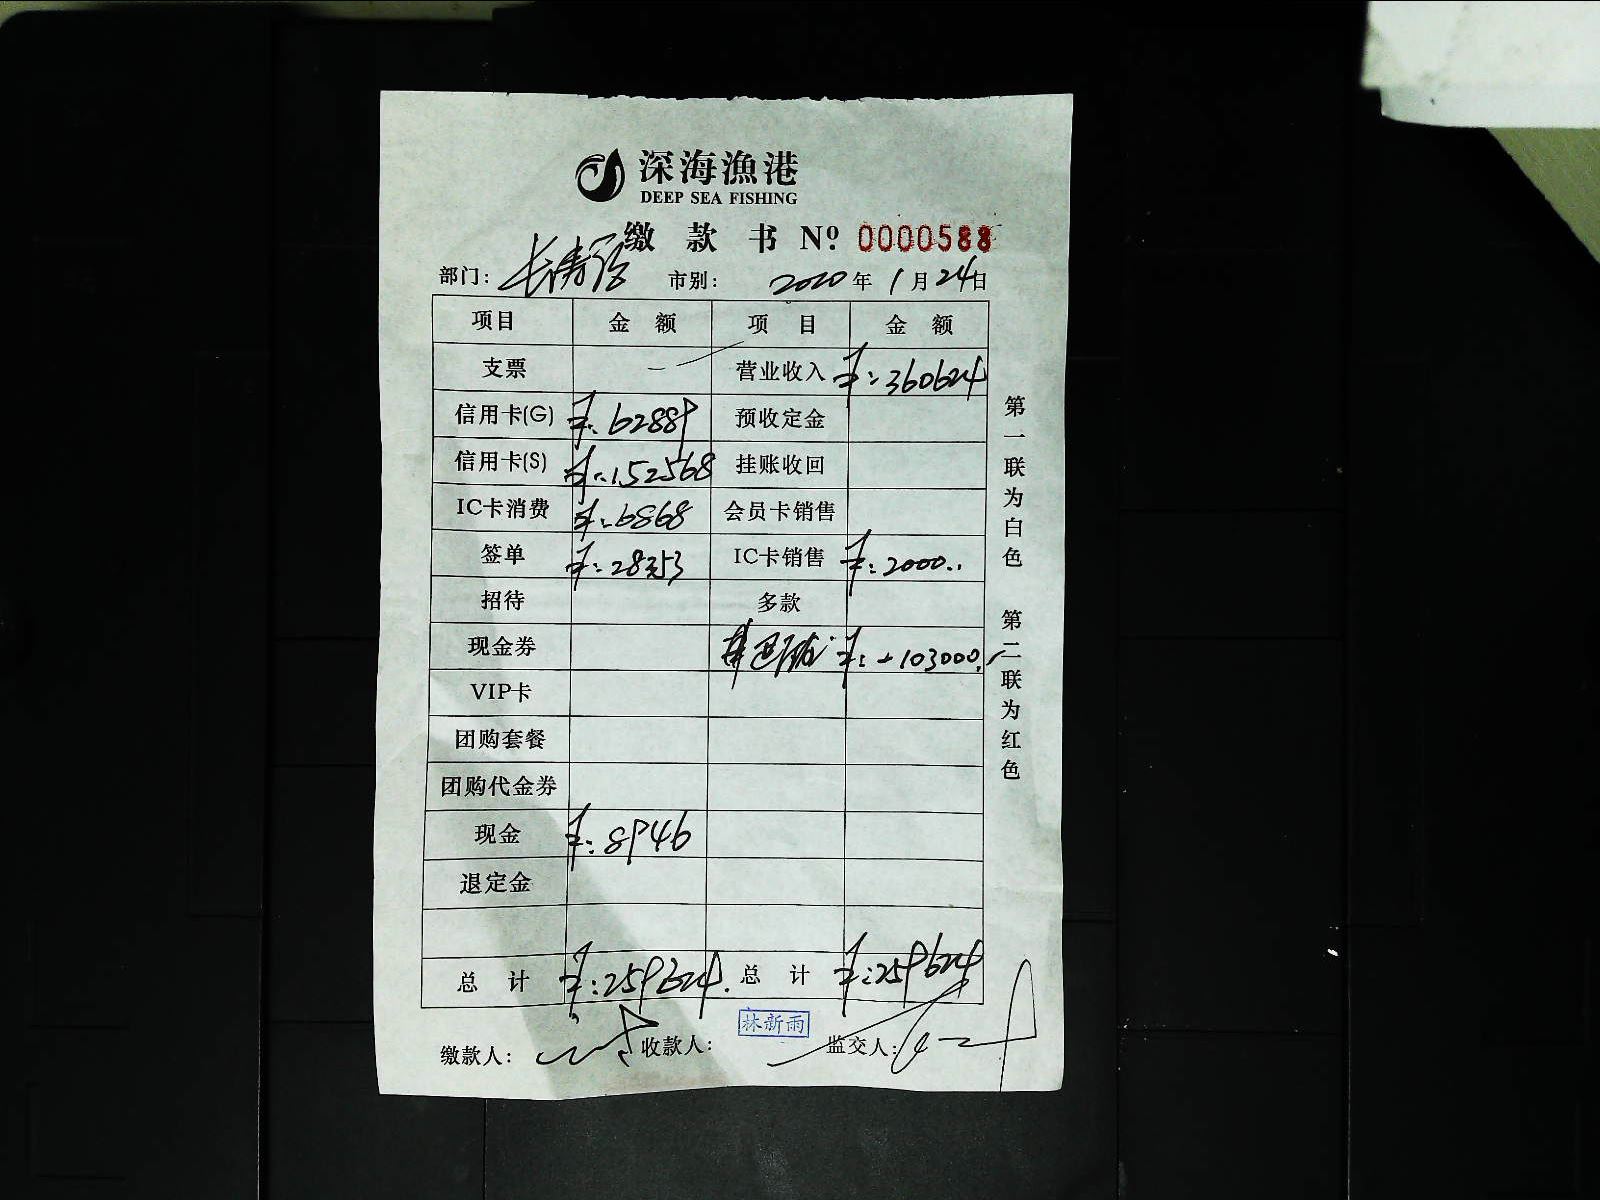 深海漁港
DEEP SEA FISHING
缴款书 Nº 0000588
部门: 长寿路 市别: 2020年1月24日
项目 金额 项目 金额
支票 — 营业收入 ¥:360624
信用卡(G) ¥:62889 预收定金
信用卡(S) ¥:152568 挂账收回
IC卡消费 ¥:6868 会员卡销售
签单 ¥:28353 IC卡销售 ¥:2000..
招待 多款
现金券 ¥:-103000.
VIP卡
团购套餐
团购代金券
现金 ¥:8946
退定金
总计 ¥:259624. 总计 ¥:259624
缴款人: 收款人: 林新雨 监交人:
第一联为白色 第二联为红色